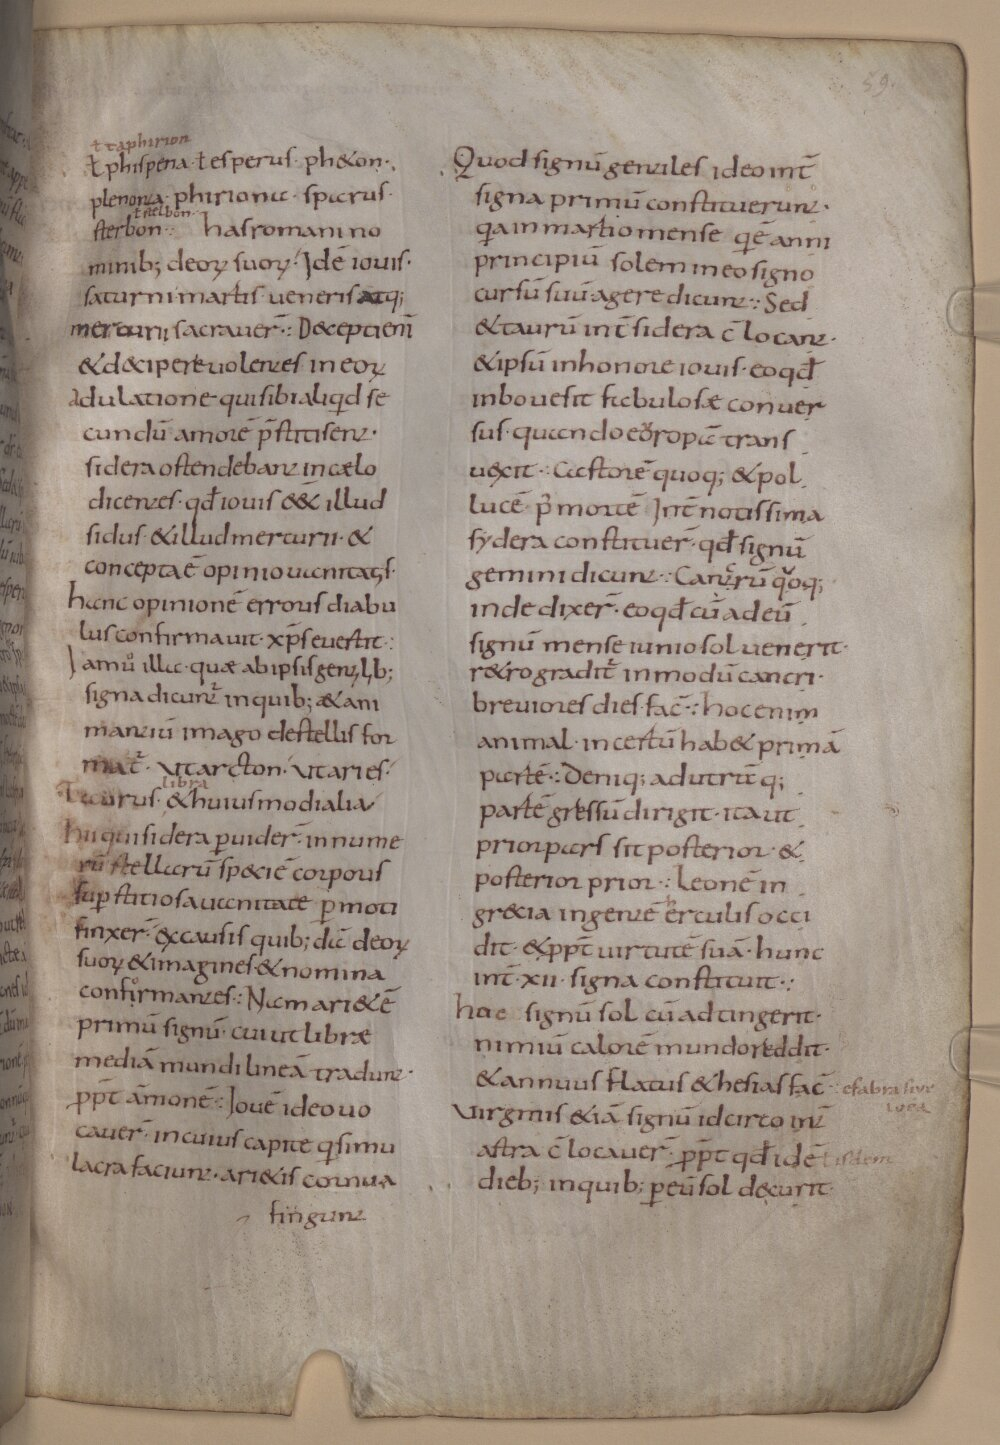 59.
ł taphirion
ł phispena· ł esperus· ph&on·
plenonta· phirionta· spacrus·
ł stelbon·
sterbon:· has romani no
minib; deoꝝ suoꝝ· Idē iouis·
saturni· martis· ueneris· atq;
mercurii sacrauer̄·: D&cepti enī
& d&cipere uolentes in eoꝝ
adulatione qui sibi aliqd se
cundū amorē p̄stitisent·
sidera ostendebant in cælo
dicentes· qđ iouis e&̄ illud
sidus· & illud mercurii· &
concepta ē opinio uanitatis·
hanc opinionē erroris diabu
lus confirmauit· xp̄s euertit·:
Iamū illa· quæ ab ipsis gentilib;
signa dicunt̄ in quib; & ani
mantiū imago de stellis for
mat̄· ut arcton· ut aries·
libra
Taurus· & huius modi alia
hii qui sidera puider̄· in nume
rū stellarū sp&ciē corporis
supstitiosa uanitate pmoti
finxer̄· ex causis quib; dā deoꝝ
suoꝝ & imagines· & nomina
confirmantes·: Nam ari&ē
primū signū· cui ut libræ
mediā mundi lineā tradunt·
ppt̄ āmonē·: Iouē ideo uo
cauer̄· in cuius capite qi simu
lacra faciunt· ari&is cornua
fingunt
Quod signū gentiles ideo int̄
signa primū constituerunt·
qa in martio mense qē anni
principiū solem in eo signo
cursū suū agere dicunt·: Sed
& taurū int̄ sidera c̄locant·
& ipsū in honore iouis· eo qđ
in boue sit fabulosæ conuer
sus· quando eoropā trans
uexit·: Castorē quoq; & pol
lucē p̄ mortē Int̄ notissima
sydera constituer̄· qđ signū
gemini dicunt·: Cancrū quoq;
inde dixer̄· eo qđ cū ad eū
signū mense iunio sol uenerit·
r&rogradit̄ in modū cancri·
breuiores dies· fac̄·: hoc enim
animal· incertū hab& primā
partē·: Deniq; ad utrāq;
partē gressū dirigit· ita ut
prior pars sit posterior· &
posterior prior·: Leonē in
grecia ingentē herculis occi
dit· & ppt̄ uirtutē suā· hunc
int̄· xii· signa constituit·:
hac signū sol cū adtingerit·
nimiū calorē mundo reddit·
& annuus flatus &hesias fac̄·
Virginis &iā signū idcirco int̄
astra c̄locauer̄· ppt̄ qđ idē
ł isdem
dieb; in quib; p eū sol decurit·